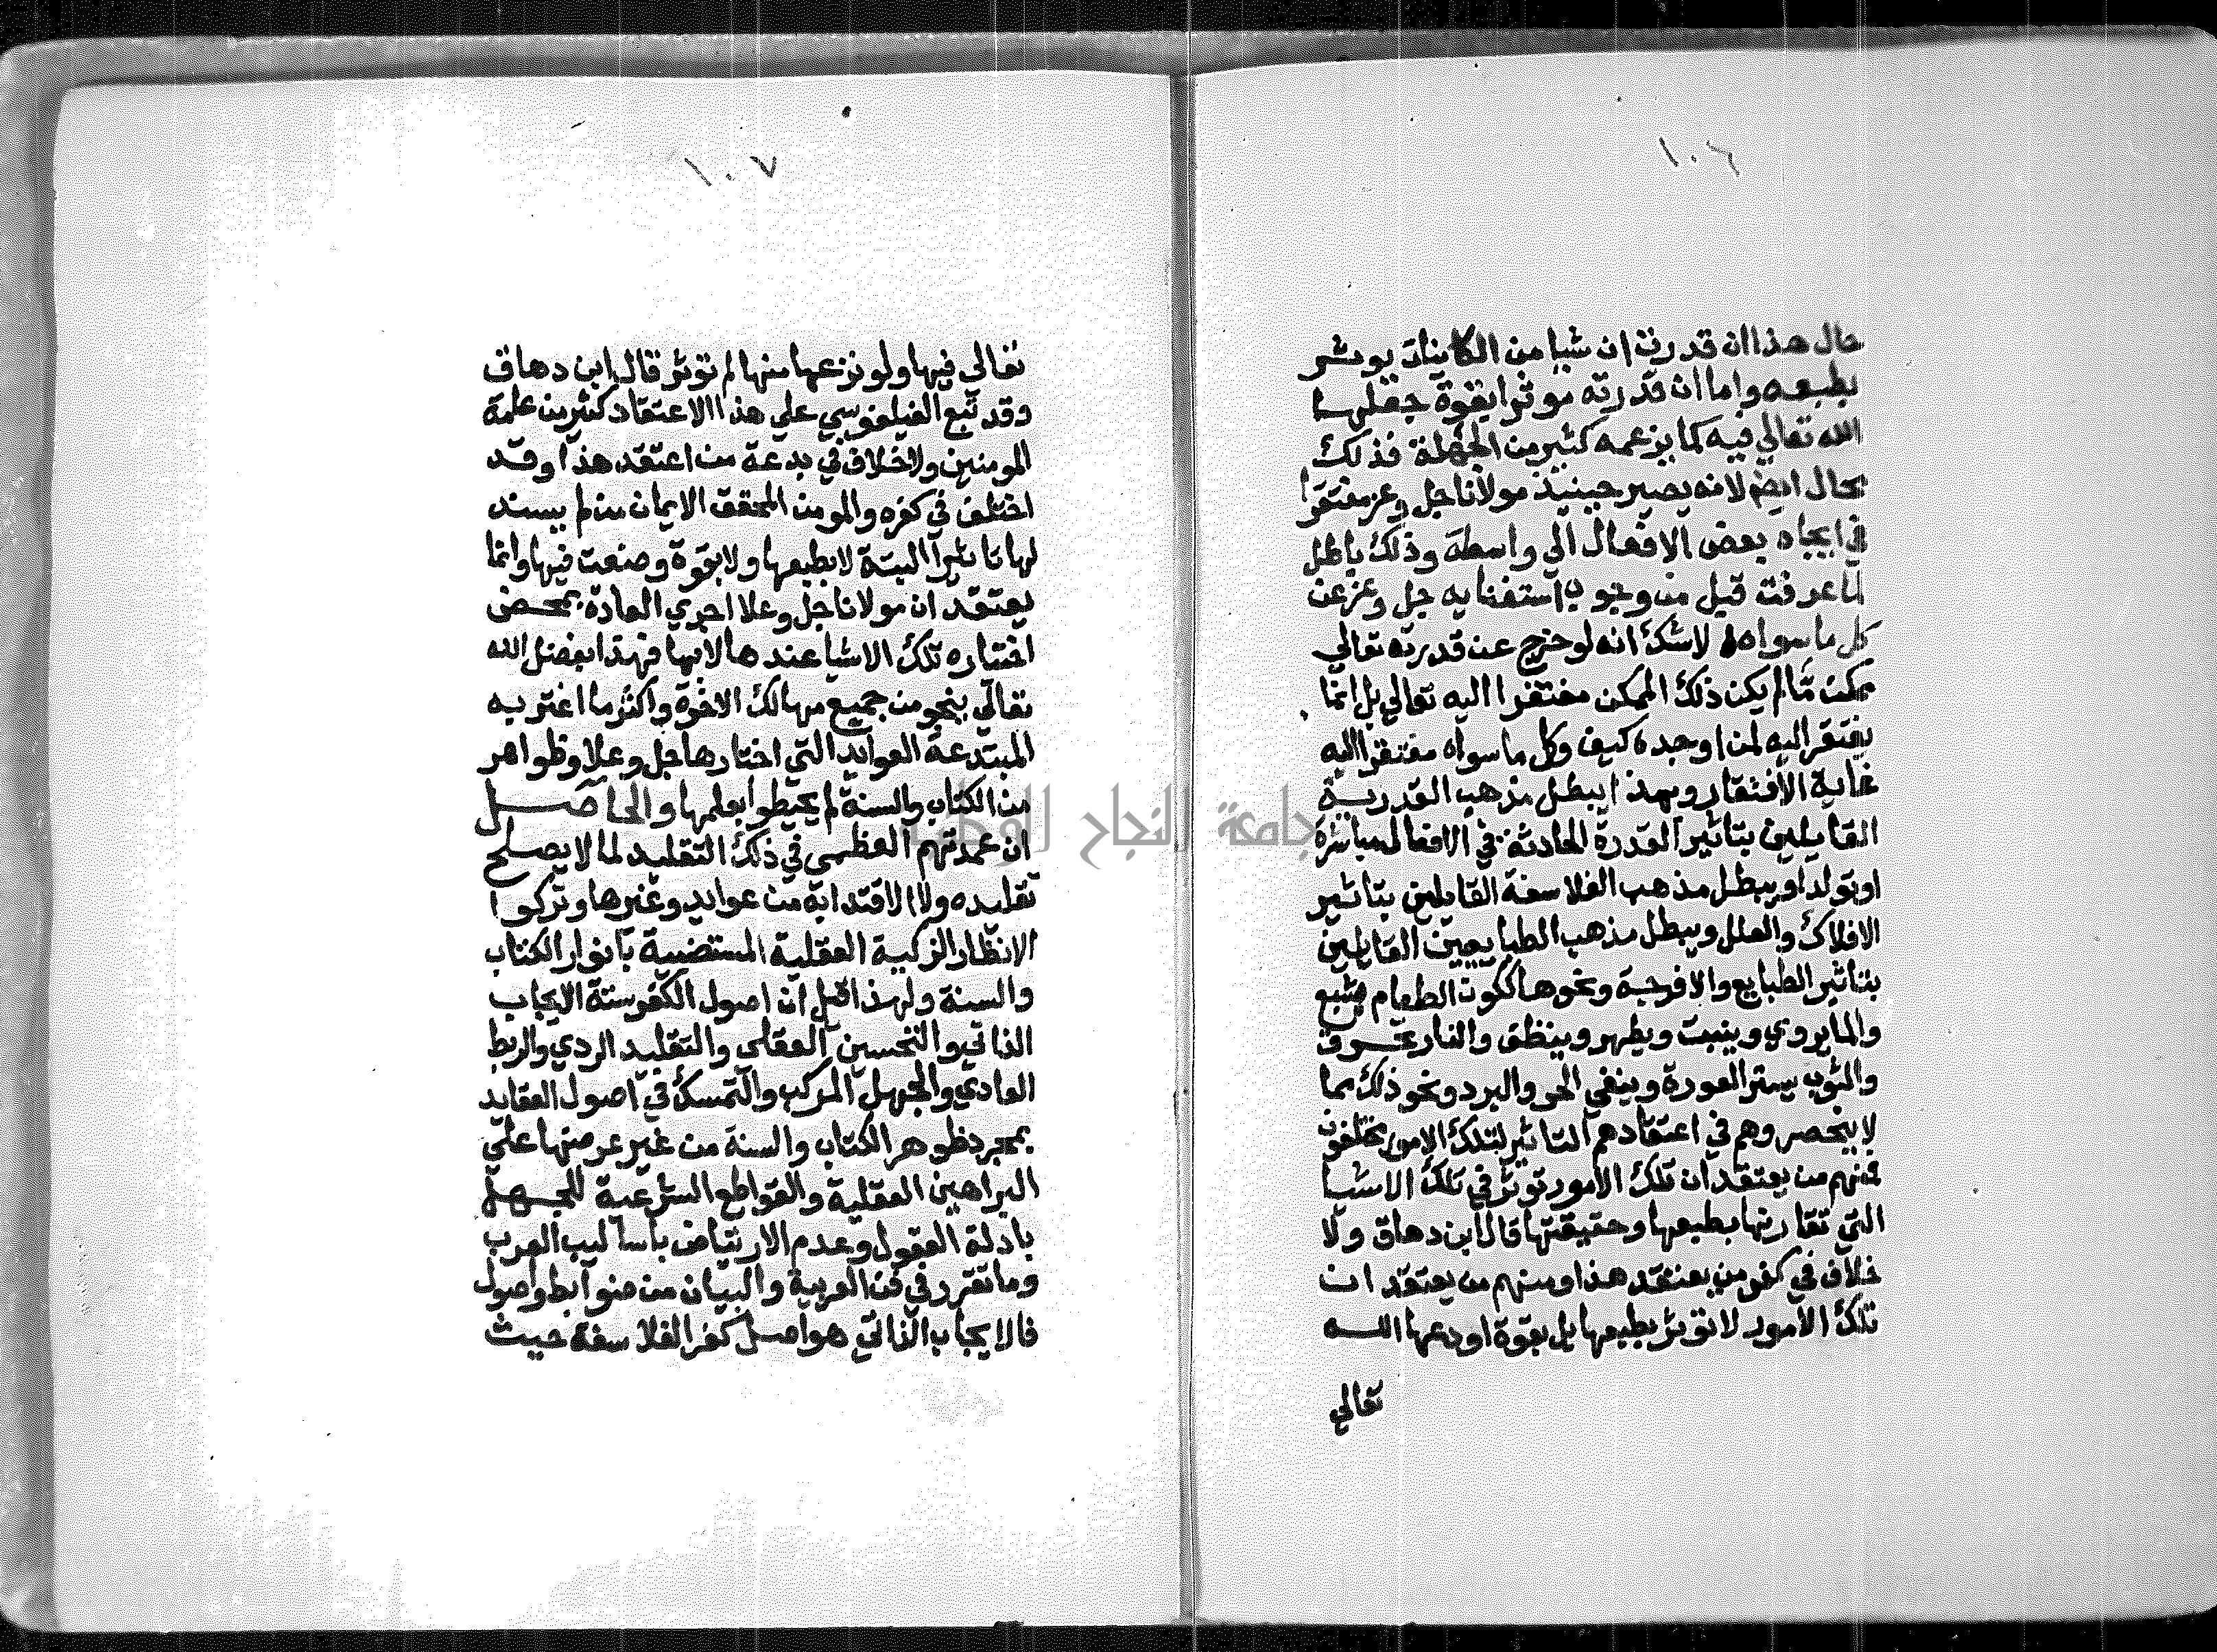 ١٠٦
حال هذا ان قدرت ان شيا من الكاينات يوثر
بطبعه واما ان قدرته موثرا بقوة جعلها
الله تعالي فيه كما يزعمه كثير من الجهلة فذلك
محال ايضا لانه يصير حينيذ مولانا جل وعز مفتقرا
في ايجاد بعض الافعال الي واسطة وذلك باطل
لما عرفت قبل من وجوب استغنايه جل وعز عن
كل ما سواه لا شك انه لو خرج عن قدرته تعالي
ممكن ما لم يكن ذلك الممكن مفتقرا اليه تعالي بل انما
يفتقر اليه لمن اوجده كيف وكل ما سواه مفتقر اليه
غاية الافتقار وبهذا يبطل مذهب القدرية
القايلين بتاثير القدرة الحادثة في الافعال مباشرة
او تولدا ويبطل مذهب الفلاسفة القايلين بتاثير
الافلاك والعلل ويبطل مذهب الطبايعيين القايلين
بتاثير الطبايع والامزجة ونحوها ككون الطعام يشبع
والما يروي وينبت ويطهر وينظف والنار تحرق
والثوب يستر العورة ويتقي الحر والبرد ونحو ذلك مما
لا ينحصر وهم في اعتقادهم التاثير لتلك الامور مختلفون
فمنهم من يعتقد ان تلك الامور توثر في تلك الاشيا
التي تقارنها بطبعها وحقيقتها قال ابن دهاق ولا
خلاف في كفر من يعتقد هذا ومنهم من يعتقد ان
تلك الامور لا توثر بطبعها بل بقوة اودعها الله
تعالي
١٠٧
تعالي فيها ولو نزعها منها لم توثر قال ابن دهاق
وقد تبع الفيلفوسي علي هذا الاعتقاد كثير من علمة
المومنين ولا خلاف في بدعة من اعتقد هذا وقد
اختلف في كفره والمومن المحقق الايمان من لم يسند
لها تاثيرا البتة لا بطبعها ولا بقوة وضعت فيها وانما
يعتقد ان مولانا جل وعلا اجري العادة بمحض
اختياره تلك الاشيا عندها لا بها فهذا بفضل الله
تعالي ينجو من جميع مهالك الاخرة واكثر ما اغتر به
المبتدعة العوايد التي اختارها جل وعلا وظواهر
من الكتاب والسنة لم يحيطوا بعلمها والحاصل
ان عمدتهم العظمي في ذلك التقليد لما لا يصلح
تقليده ولا الاقتدا به من عوايد وغيرها وتركوا
الانظار الزكية العقلية المستضية بانوار الكتاب
والسنة ولهذا قيل ان اصول الكفر ستة الايجاب
الذاتي والتحسين العقلي والتقليد الردي والربط
العادي والجهل المركب والتمسك في اصول العقايد
بمجرد ظوهر الكتاب والسنة من غير عرضها علي
البراهين العقلية والقواطع الشرعية للجهل
بادلة العقول وعدم الارتياض باساليب العرب
وما تقرر في فن العربية والبيان من ضوابط واصول
فالايجاب الذاتي هو اصل كفر الفلاسفة حيث
جامعة النجاح الوطنية